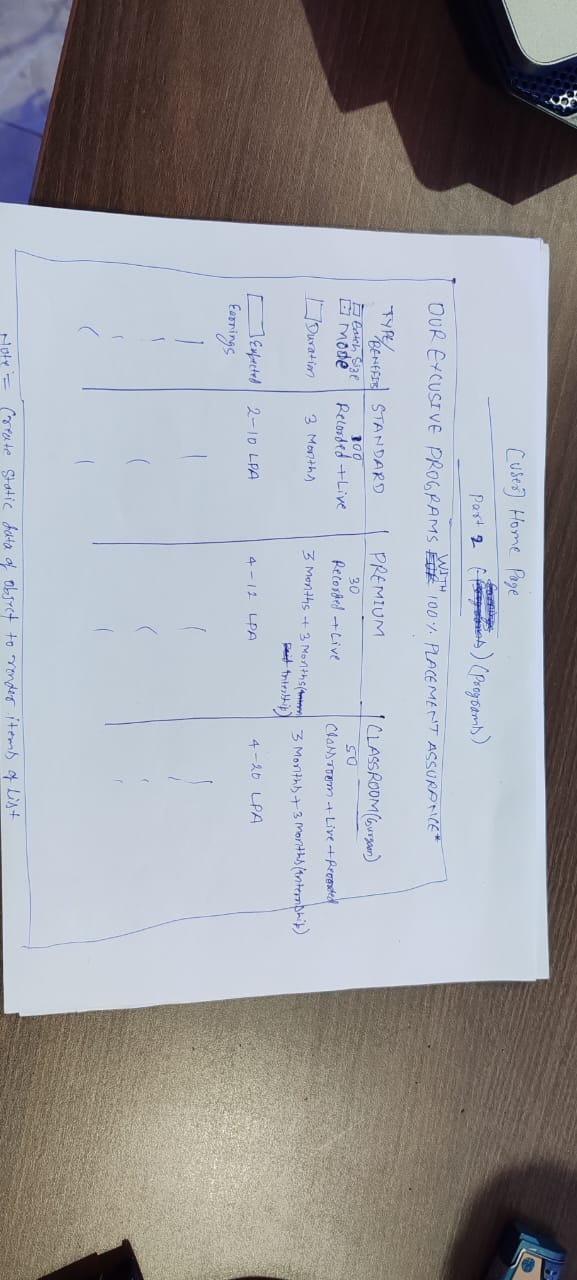 [User] Home Page
Part 2 (Programs)
OUR EXCUSIVE PROGRAMS WITH 100% PLACEMENT ASSURANCE*
TYPE/BENEFITS STANDARD PREMIUM CLASSROOM (Gurgaon)
Batch Size 100 30 50
Mode Recorded + Live Recorded + Live Classroom + Live + Recorded
Duration 3 Months 3 Months + 3 Months( 3 Months + 3 Months (Internship)
Intership)
Expected 2-10 LPA 4-12 LPA 4-20 LPA
Earnings
Note:= Create static data of object to render items of List